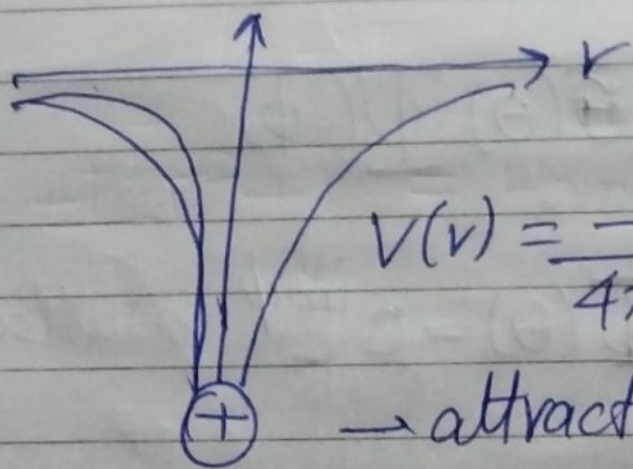 r
V(r) = -
4
+
→ attract